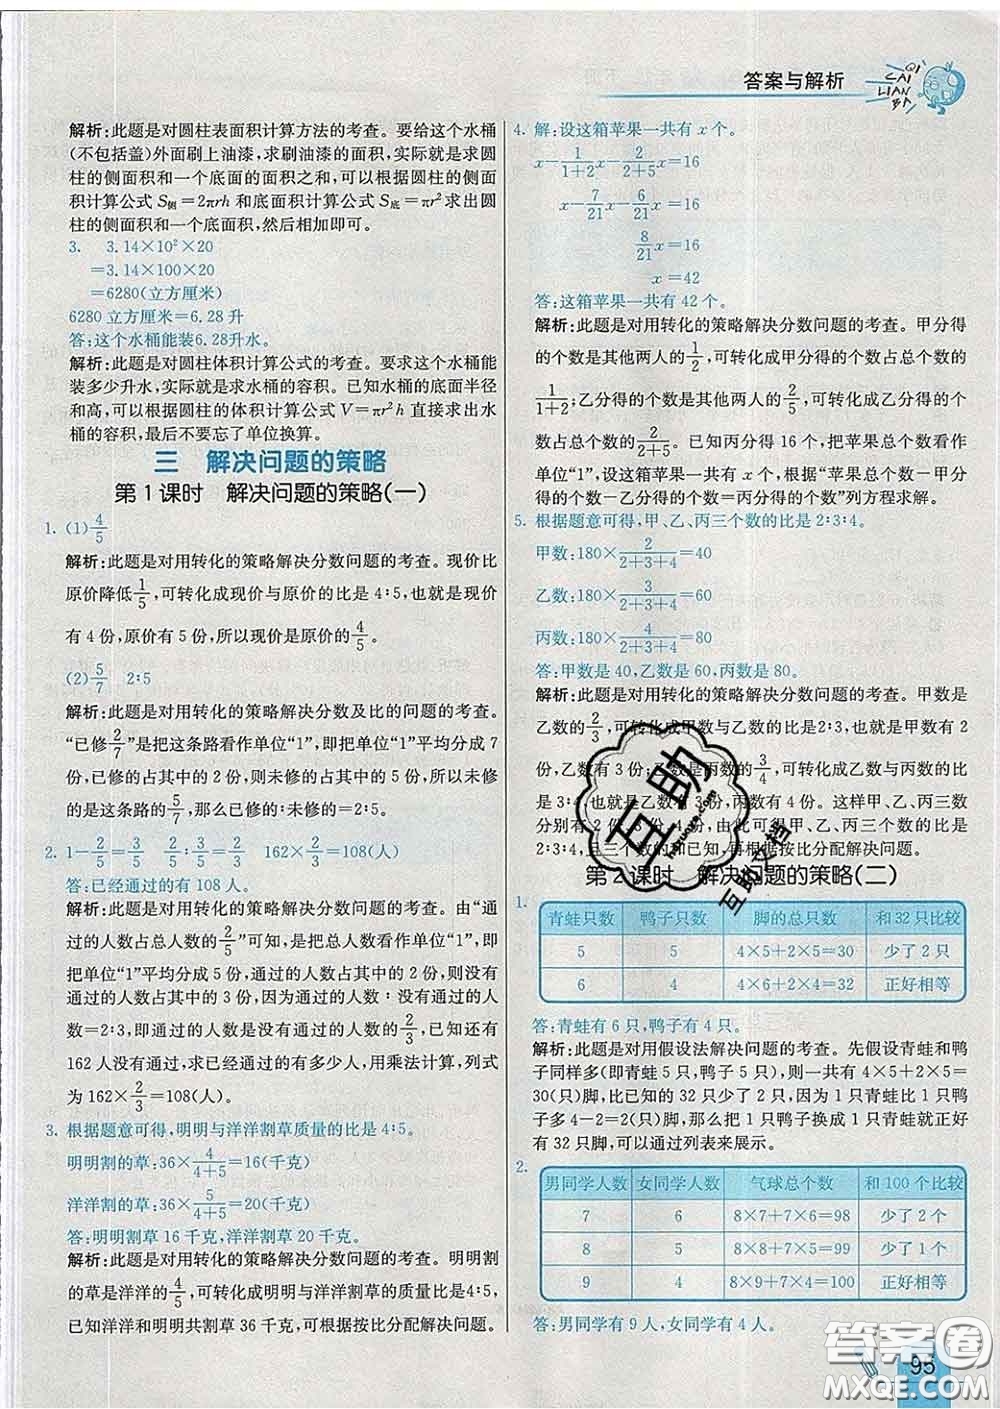 答案与解析
QI
CAI
LIAN
BA
解析:此题是对圆柱表面积计算方法的考查。要给这个水桶
(不包括盖)外面刷上油漆,求刷油漆的面积,实际就是求圆
柱的侧面积和一个底面的面积之和,可以根据圆柱的侧面
积计算公式 S侧=2πrh 和底面积计算公式 S底=πr²求出圆
柱的侧面积和一个底面积,然后相加即可。
3. 3.14×10²×20
=3.14×100×20
=6280(立方厘米)
6280 立方厘米=6.28升
答:这个水桶能装6.28升水。
解析:此题是对圆柱体积计算公式的考查。要求这个水桶能
装多少升水,实际就是求水桶的容积。已知水桶的底面半径
和高,可以根据圆柱的体积计算公式 V=πr²h 直接求出水
桶的容积,最后不要忘了单位换算。
三 解决问题的策略
第 1 课时 解决问题的策略(一)
1. (1)4/5
解析:此题是对用转化的策略解决分数问题的考查。现价比
原价降低1/5,可转化成现价与原价的比是 4∶5,也就是现价
有 4 份,原价有 5 份,所以现价是原价的4/5。
(2)5/7 2∶5
解析:此题是对用转化的策略解决分数及比的问题的考查。
“已修2/7”是把这条路看作单位“1”,即把单位“1”平均分成 7
份,已修的占其中的 2 份,则未修的占其中的 5 份,即未修的
是这条路的5/7,那么已修的∶未修的=2∶5。
2. 1-2/5=3/5 2/5∶3/5=2/3 162×2/3=108(人)
答:已经通过的有 108 人。
解析:此题是对用转化的策略解决分数问题的考查。由“通
过的人数占总人数的2/5”可知,是把总人数看作单位“1”,即
把单位“1”平均分成 5 份,通过的人数占其中的 2 份,没有
通过的人数占其中的 3 份,因此通过的人数∶没有通过的人
数=2∶3,即通过的人数是没有通过的人数的2/3,已知还有
162 人没有通过,求已经通过的有多少人,用乘法计算,列式
为 162×2/3=108(人)。
3. 根据题意可得,明明与洋洋割草质量的比是 4∶5。
明明割的草:36×4/(4+5)=16(千克)
洋洋割的草:36×5/(4+5)=20(千克)
答:明明割草 16 千克,洋洋割草 20 千克。
解析:此题是对用转化的策略解决分数问题的考查。明明割
的草是洋洋的4/5,可转化成明明与洋洋割草质量的比是 4∶5,
已知洋洋和明明共割草 36 千克,可根据按比分配解决问题。
4. 解:设这箱苹果一共有 x 个。
x-1/(1+2)x-2/(2+5)x=16
x-7/21x-6/21x=16
8/21x=16
x=42
答:这箱苹果一共有 42 个。
解析:此题是对用转化的策略解决分数问题的考查。甲分得
的个数是其他两人的1/2,可转化成甲分得的个数占总个数的
1/(1+2);乙分得的个数是其他两人的2/5,可转化成乙分得的个
数占总个数的2/(2+5)。已知丙分得 16 个,可把苹果个数看作
单位“1”,设这箱苹果一共有 x 个,根据“苹果总个数-甲分
得的个数-乙分得的个数=丙分得的个数”列方程求解。
5. 根据题意可得,甲、乙、丙三个数的比是 2∶3∶4。
甲数:180×2/(2+3+4)=40
乙数:180×3/(2+3+4)=60
丙数:180×4/(2+3+4)=80
答:甲数是 40,乙数是 60,丙数是 80。
解析:此题是对用转化的策略解决分数问题的考查。甲数是
乙数的2/3,可转化成甲数与乙数的比是 2∶3,也就是甲数有 2
份,乙数有 3 份;乙数是丙数的3/4,可转化成乙数与丙数的比是
3∶4,也就是乙数有 3 份,丙数有 4 份。这样甲、乙、丙三数
分别有 2 份、3 份、4 份,由此可得甲、乙、丙三个数的比是
2∶3∶4,且三个数的和已知,再根据按比分配解决问题。
第 2 课时 解决问题的策略(二)
1.
青蛙只数 鸭子只数 脚的总只数 和 32 只比较
5 5 4×5+2×5=30 少了 2 只
6 4 4×6+2×4=32 正好相等
答:青蛙有 6 只,鸭子有 4 只。
解析:此题是对用假设法解决问题的考查。先假设青蛙和鸭
子同样多(青蛙 5 只,鸭子 5 只),则共有 4×5+2×5=
30(只)脚,比已知的 32 只少了 2 只,因为 1 只青蛙比 1 只鸭
子多 4-2=2(只)脚,那么把 1 只鸭子换成 1 只青蛙就正好
有 32 只脚,可以通过列表来展示。
2.
男同学人数 女同学人数 气球总个数 和 100 个比较
7 6 8×7+7×6=98 少了 2 个
8 5 8×8+7×5=99 少了 1 个
9 4 8×9+7×4=100 正好相等
答:男同学有 9 人,女同学有 4 人。
互助
互助文档
95
答案圈
MXQE.COM